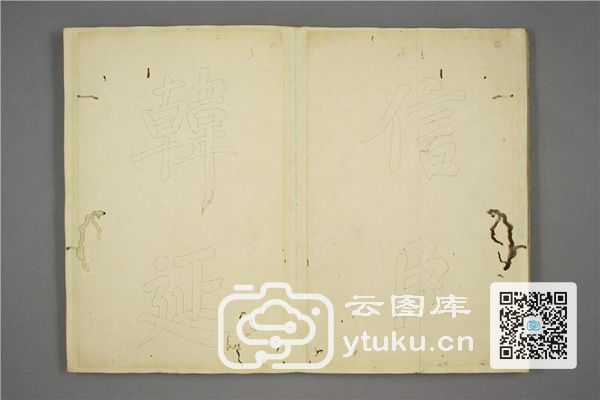 信臣
韓延
云图库
ytuku.cn